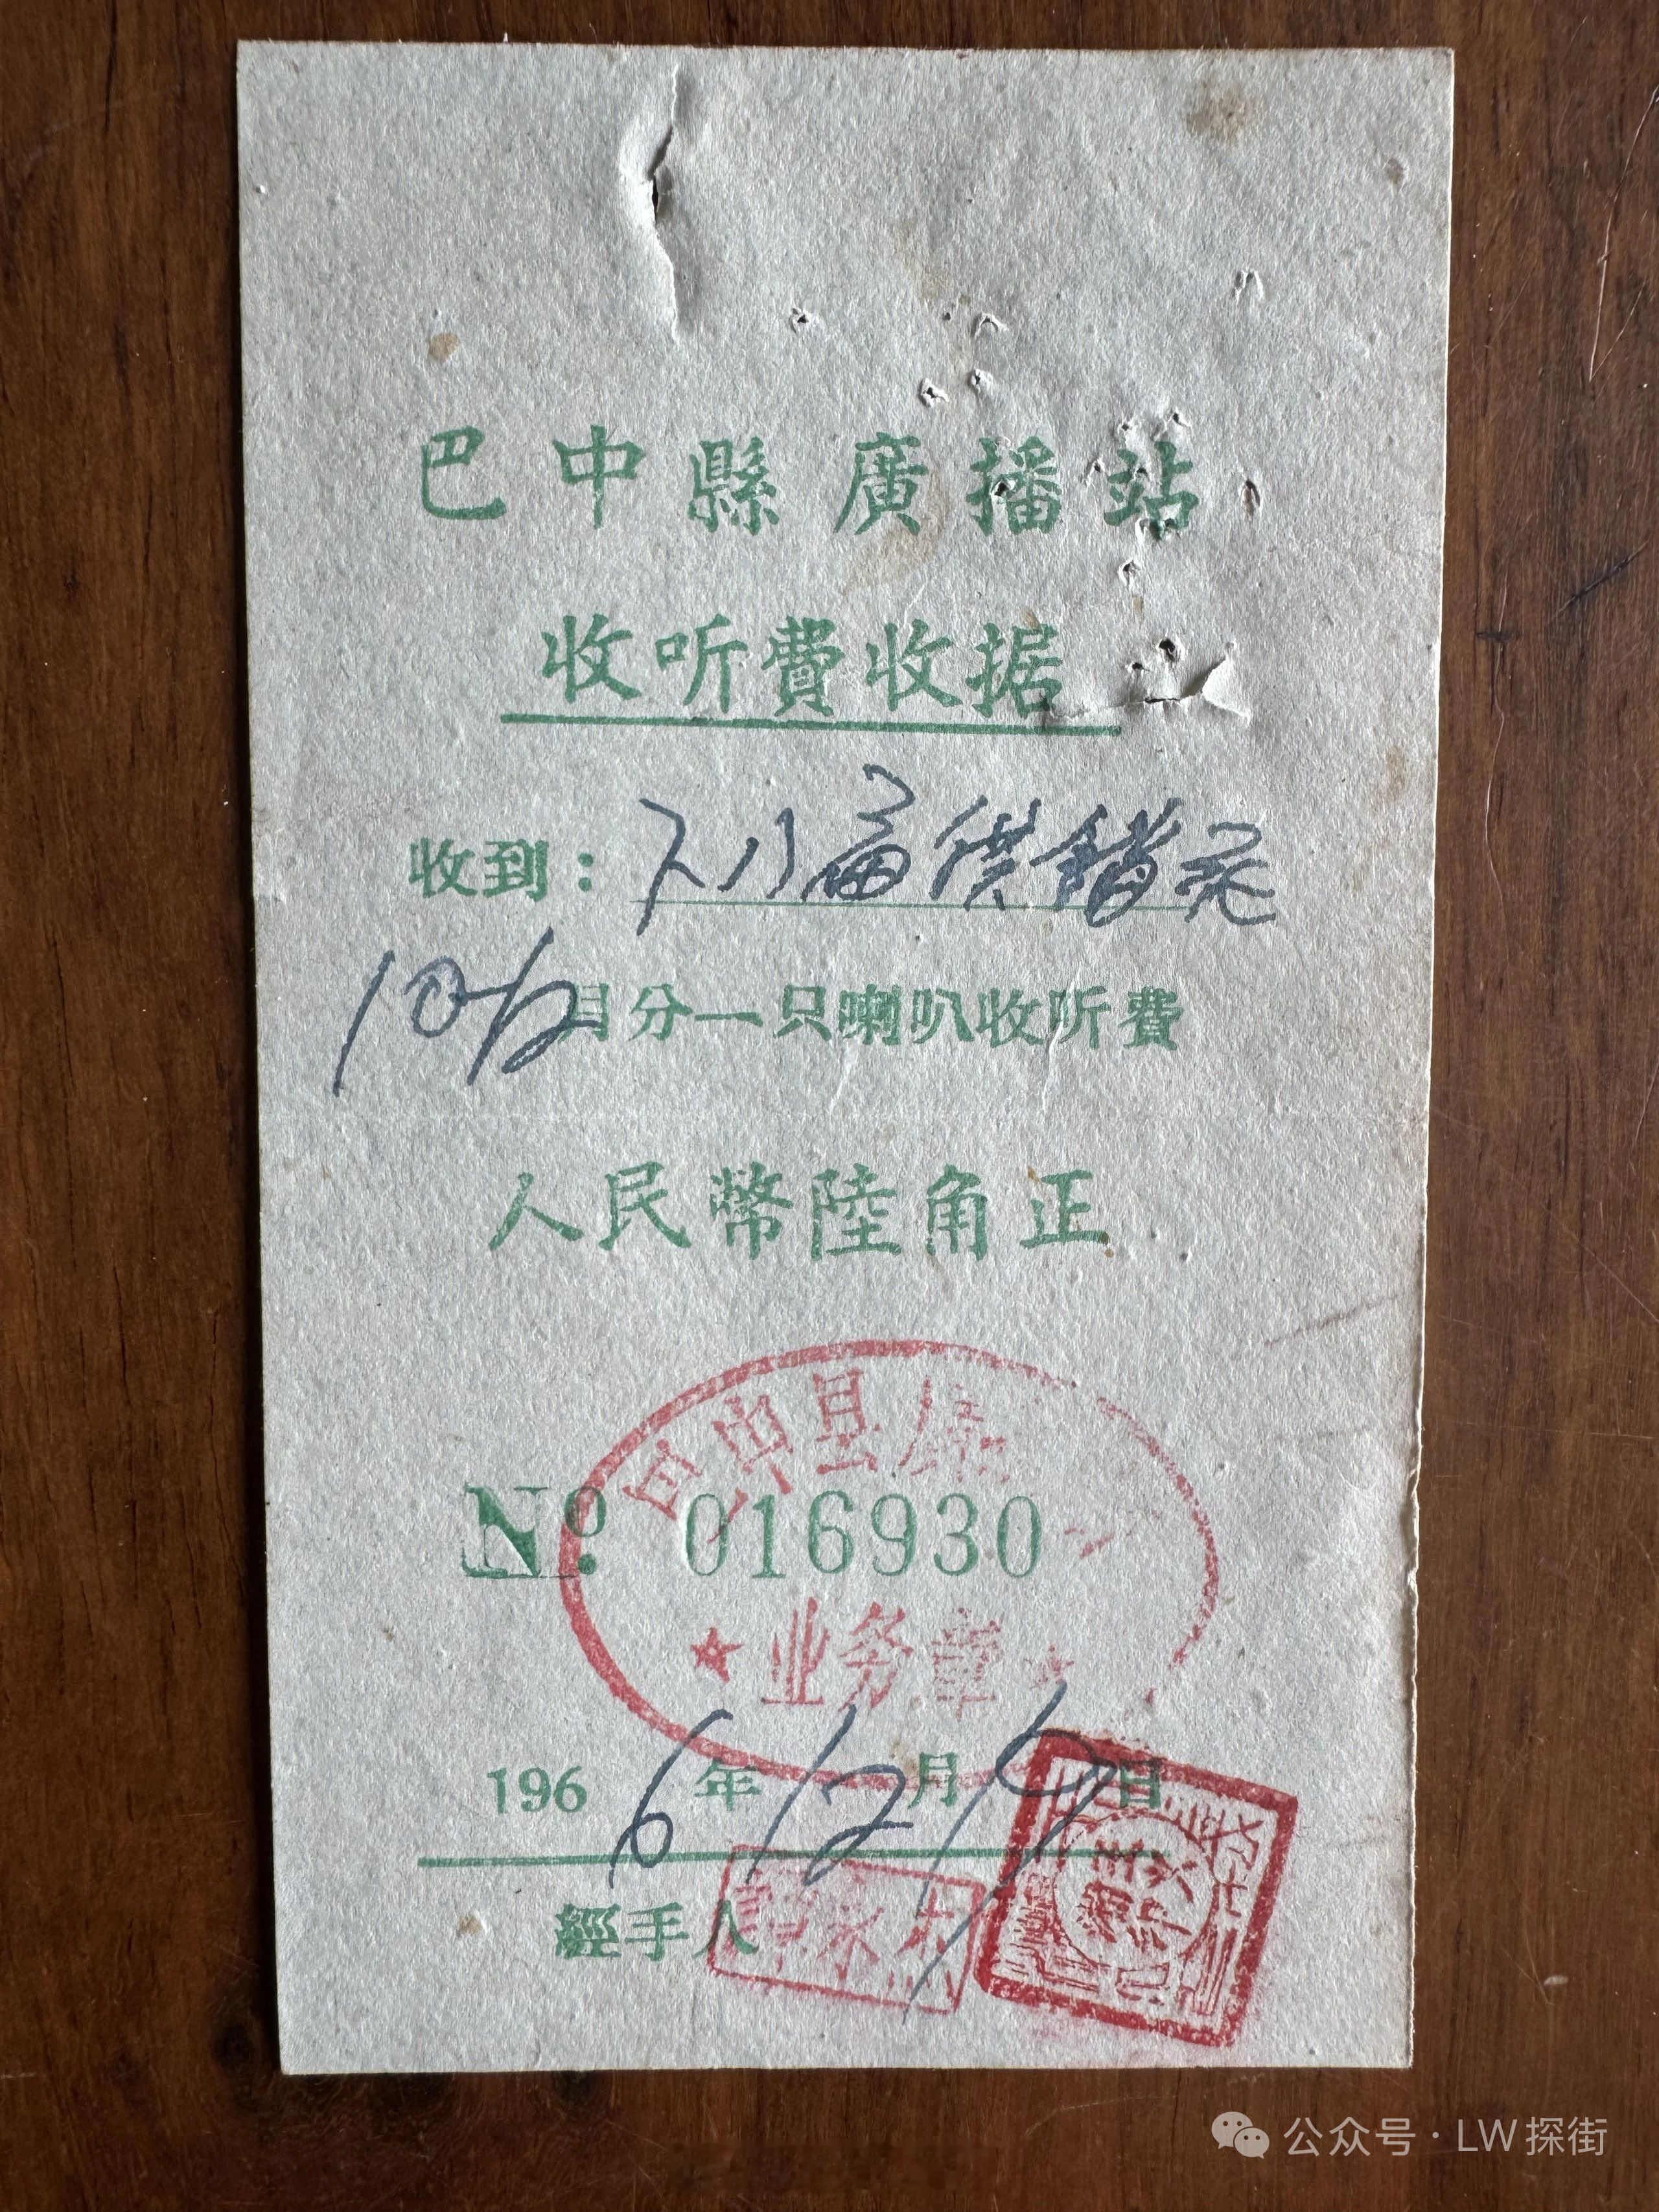 巴中縣廣播站
收听費收据
收到：下八庙供销
10-12月分一只喇叭收听費
人民幣陸角正
巴中县广
№ 016930
★业务章★
1966年12月19日
經手人
公众号·LW探街